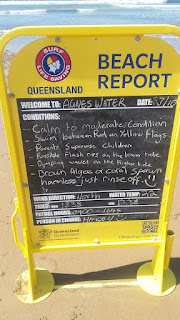 SURF
LIFE SAVING
QUEENSLAND
BEACH
REPORT
WELCOME TO: AGNES WATER DATE:
CONDITIONS:
Calm to moderate Condition
Swim between Red n Yellow Flags
- Parents Supervise Children
- Possible Flash rips on the lower tide
- Dumping waves on the Higher tide
- Brown Algaes or coral spawn
harmless just rinse off :)
WIND DIRECTION: North WATER TEMP:
TIDES
PATROL HOURS:
PERSON IN CHARGE:
Queensland